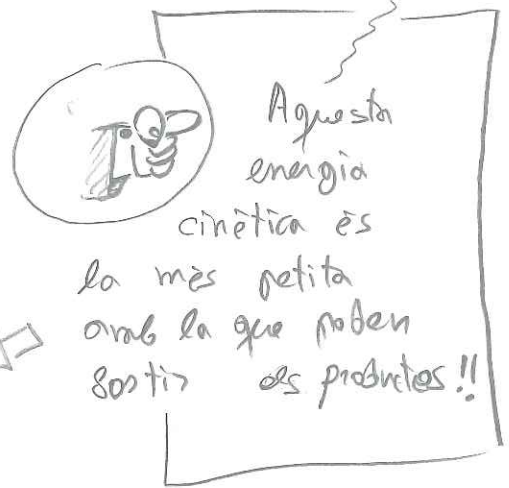 Aquesta
energia
cinètica és
la més petita
amb la que poden
sortir els productes!!